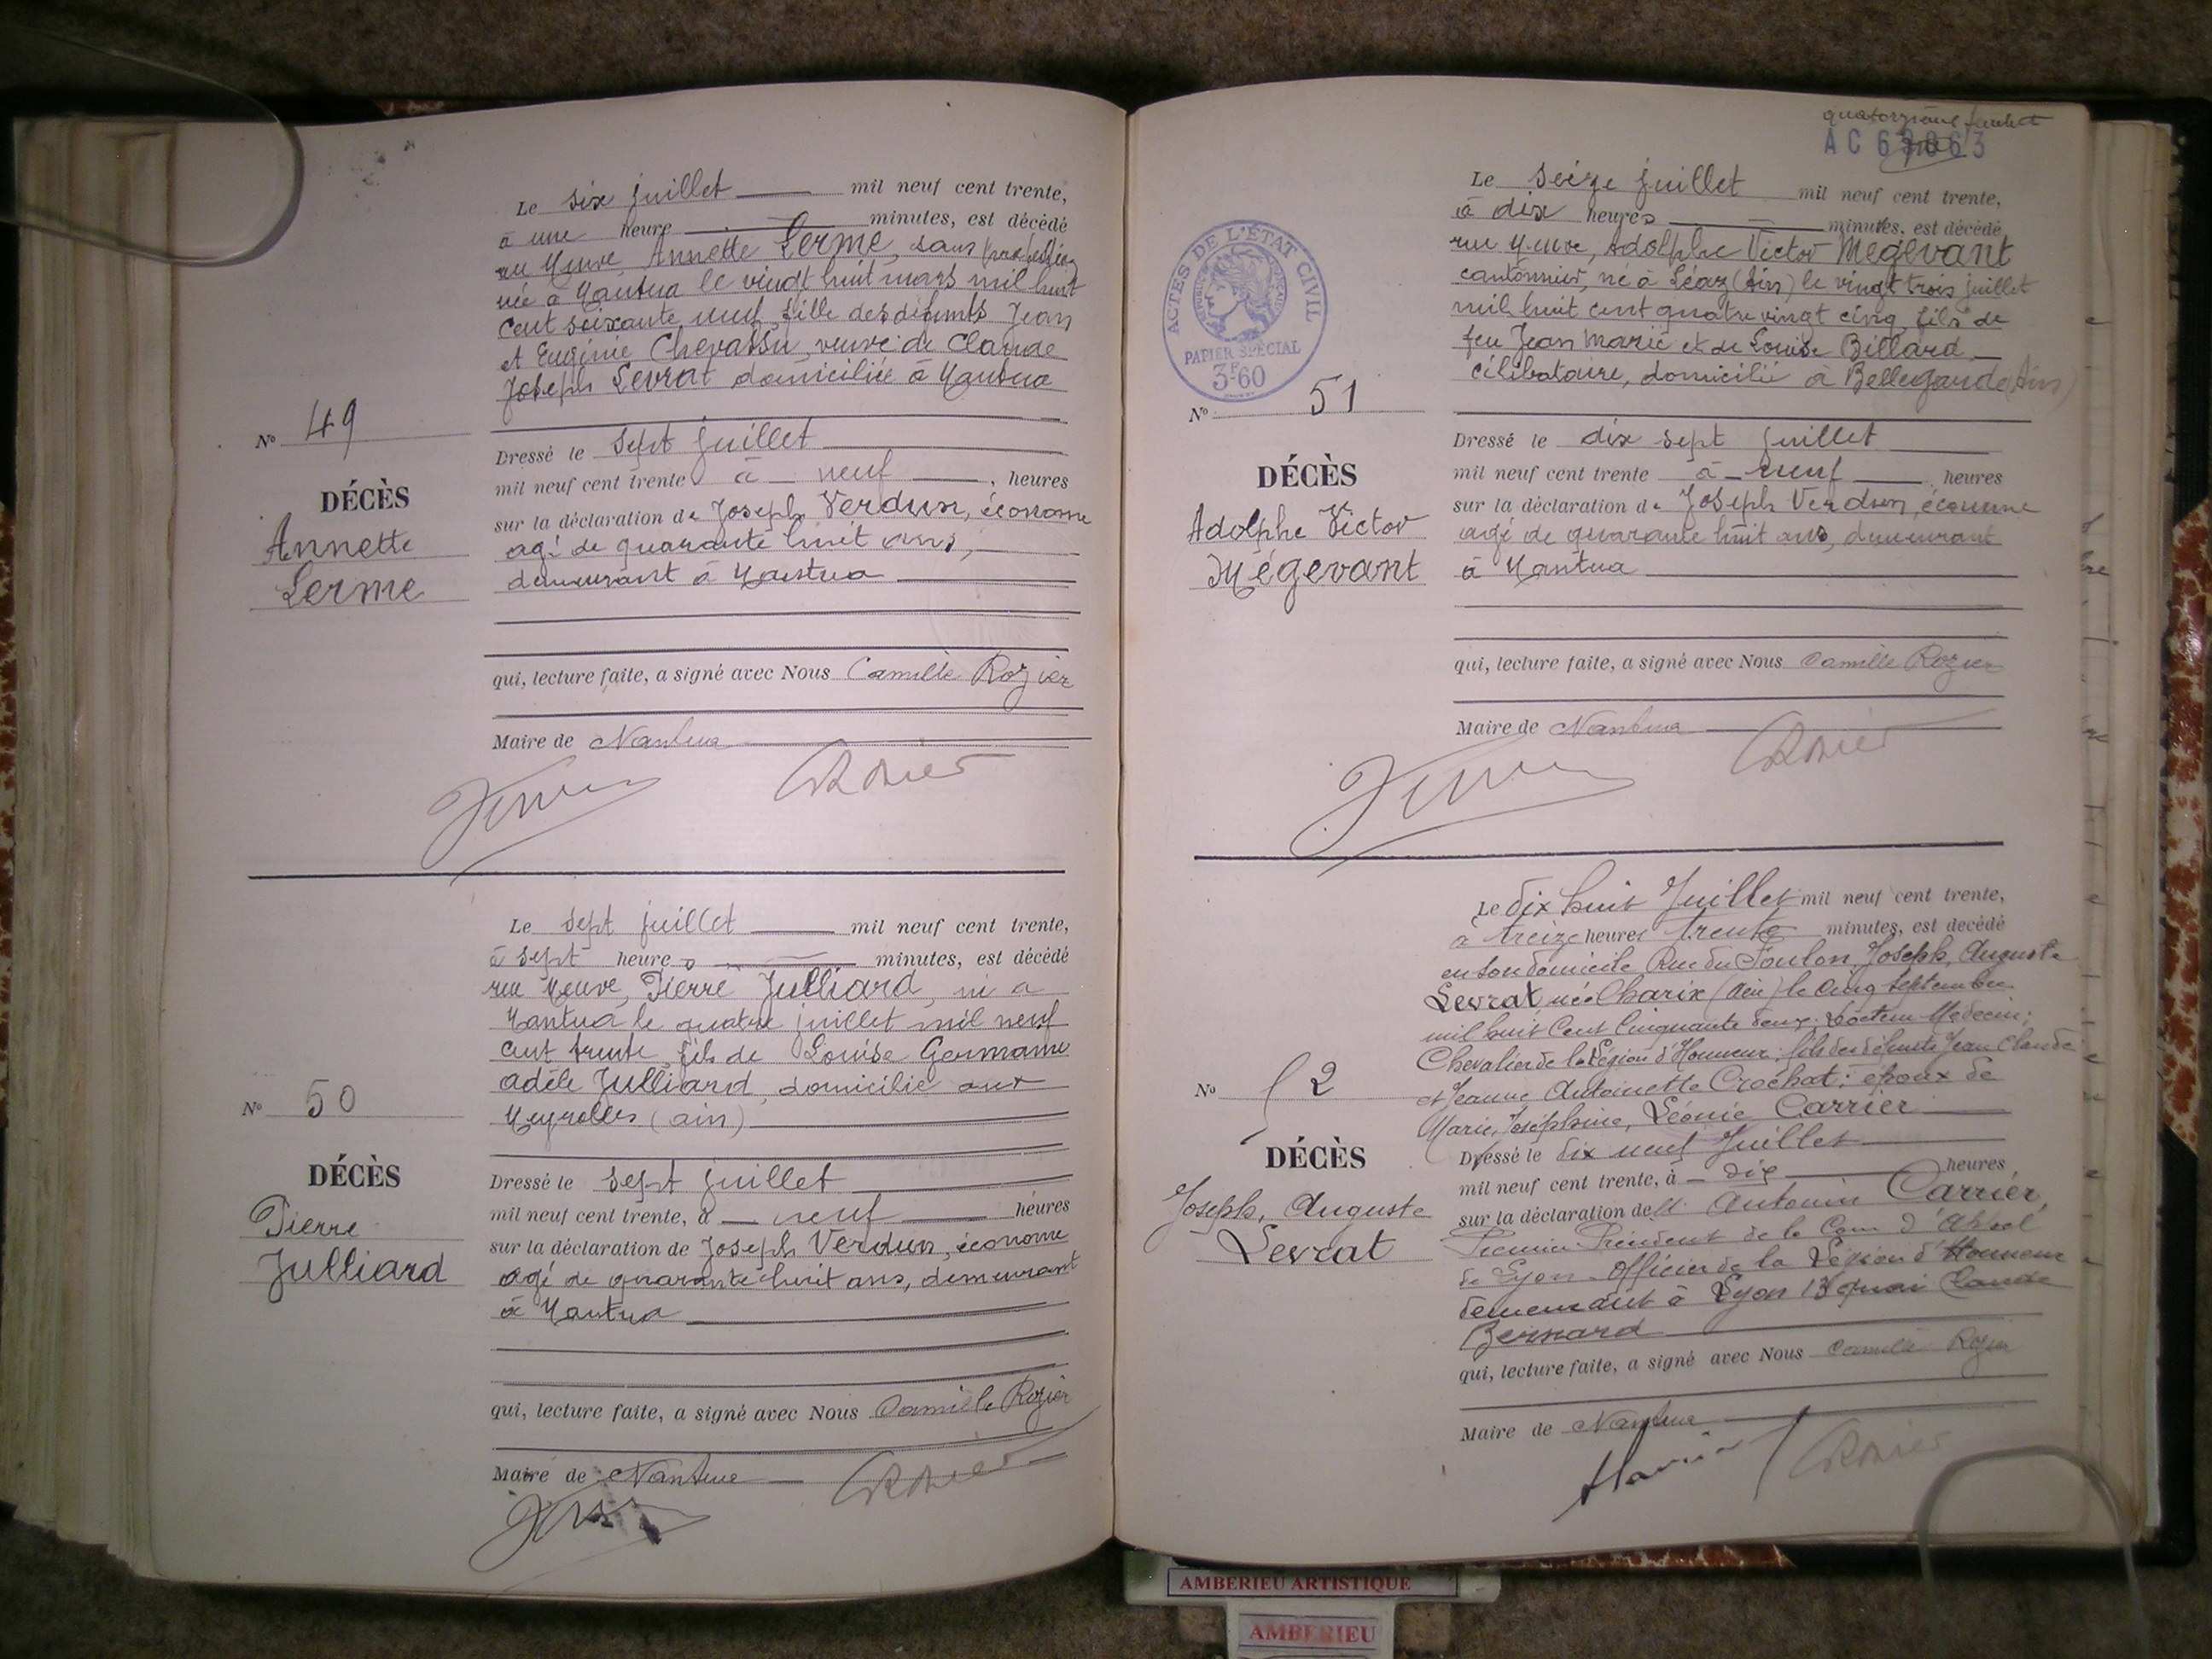 Le six juillet mil neuf cent trente,
à une heure minutes, est décédé
rue Neuve, Annette Lerme, sans profession
née à Nantua le vingt huit mars mil huit
cent soixante neuf, fille des défunts Jean
et Eugénie Chevassu, veuve de Claude
Joseph Levrat domiciliée à Nantua
Nº 49
Dressé le sept juillet
mil neuf cent trente à neuf, heures
DÉCÈS
sur la déclaration de Joseph Verdun, économe
Annette
agé de quarante huit ans,
Lerme
demeurant à Nantua
qui, lecture faite, a signé avec Nous Camille Rozier
Maire de Nantua
Le sept juillet mil neuf cent trente,
à sept heures minutes, est décédé
rue Neuve, Pierre Julliard, né a
Nantua le quatre juillet mil neuf
cent trente, fils de Louise Germaine
adèle Julliard, domicilié aux
Neyrolles (ain)
Nº 50
DÉCÈS
Dressé le sept juillet
Pierre
mil neuf cent trente, à neuf heures
Julliard
sur la déclaration de Joseph Verdun, économe
agé de quarante huit ans, demeurant
à Nantua
qui, lecture faite, a signé avec Nous Camille Rozier
Maire de Nantua
CRozier
quatorzième feuillet
ACTES DE L'ÉTAT CIVIL
PAPIER SPÉCIAL
3F60
Le seize juillet mil neuf cent trente,
à dix heures minutes, est décédé
rue Neuve, Adolphe Victor Mégevant
cantonnier, né à Léaz (Ain) le vingt trois juillet
mil huit cent quatre vingt cinq, fils de
feu Jean Marie et de Louise Billard
célibataire, domicilié à Bellegarde (Ain)
Nº 51
Dressé le dix sept juillet
DÉCÈS
mil neuf cent trente à neuf heures
Adolphe Victor
sur la déclaration de Joseph Verdun, économe
Mégevant
agé de quarante huit ans, demeurant
à Nantua
qui, lecture faite, a signé avec Nous Camille Rozier
Maire de Nantua
CRozier
Le dix huit Juillet mil neuf cent trente,
à treize heures trente minutes, est décédé
en son domicile Rue du Joseph, Auguste
Levrat né à Charix (Ain) le cinq septembre
mil huit Cent Cinquante deux. Docteur Médecin;
Chevalier de la Légion d'Honneur; fils des défunts Jean Claude
et Jeanne Antoinette Crochat; époux de
Marie, Joséphine, Léonie Carrier
Nº 52
DÉCÈS
Dressé le dix neuf Juillet
mil neuf cent trente, à dix heures
Joseph, Auguste
Levrat
sur la déclaration de M. Antonin Carrier,
Premier Président de la Cour d'Appel
de Lyon. Officier de la Légion d'Honneur
demeurant à Lyon 13 quai Claude
Bernard
qui, lecture faite, a signé avec Nous Camille Rozier
Maire de Nantua
CRozier
AMBERIEU ARTISTIQUE
AMBERIEU